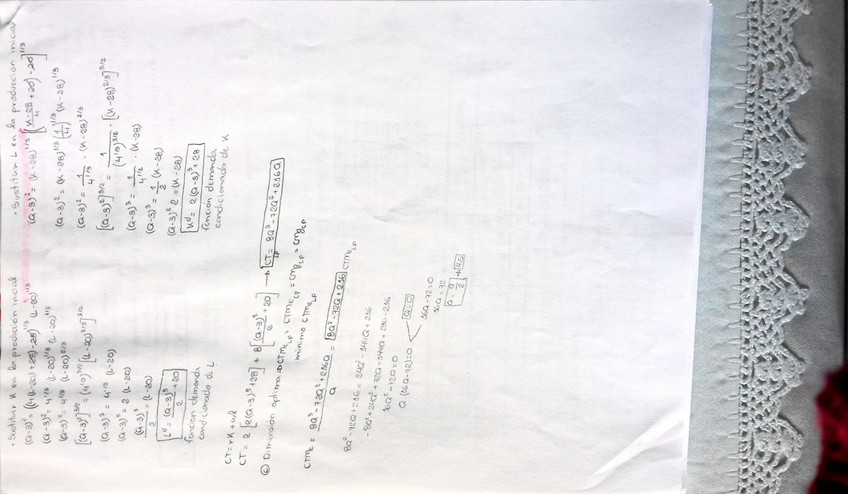 · Sustituir K en la producción inicial
(Q-3)² = (4(L-20)+28)-28)^1/3 (L-20)^1/3
(Q-3)² = 4^1/3 (L-20)^1/3 (L-20)^1/3
(Q-3)² = 4^1/3 (L-20)^2/3
[(Q-3)²]^3/2 = (4^1/3)^3/2 [(L-20)^2/3]^3/2
(Q-3)³ = 4^1/2 (L-20)
(Q-3)³ = 2 (L-20)
(Q-3)³/2 = (L-20)
L^d = (Q-3)³/2 + 20
función demanda
condicionada de L
· Sustituir L en la producción inicial
(Q-3)² = (K-28)^1/3 [(K-28/4 + 20) - 20]^1/3
(Q-3)² = (K-28)^1/3 (1/4)^1/3 (K-28)^1/3
(Q-3)² = 1/4^1/3 · (K-28)^2/3
[(Q-3)²]^3/2 = 1/(4^1/3)^3/2 · [(K-28)^2/3]^3/2
(Q-3)³ = 1/4^1/2 · (K-28)
(Q-3)³ = 1/2 (K-28)
(Q-3)³ 2 = (K-28)
K^d = 2(Q-3)³ + 28
función demanda
condicionada de K
CT = rK + wL
CT = 2 [2(Q-3)³+28] + 8 [(Q-3)³/2 + 20] → CT_LP = 8Q³ - 72Q² + 216Q
② Dimensión óptima → CTMe_LP = CTMe_CP = CMg_LP = CMg_CP
mínimo CTMe_LP
CTMe = 8Q³ - 72Q² + 216Q / Q = 8Q² - 72Q + 216 CTMe_LP
8Q² - 72Q + 216 = 24Q² - 144Q + 216
-8Q² + 24Q² + 72Q - 144Q + 216 - 216
16Q² - 72Q = 0
Q (16Q - 72) = 0
Q = 0
16Q - 72 = 0
16Q = 72
Q = 9/2 → 4,5